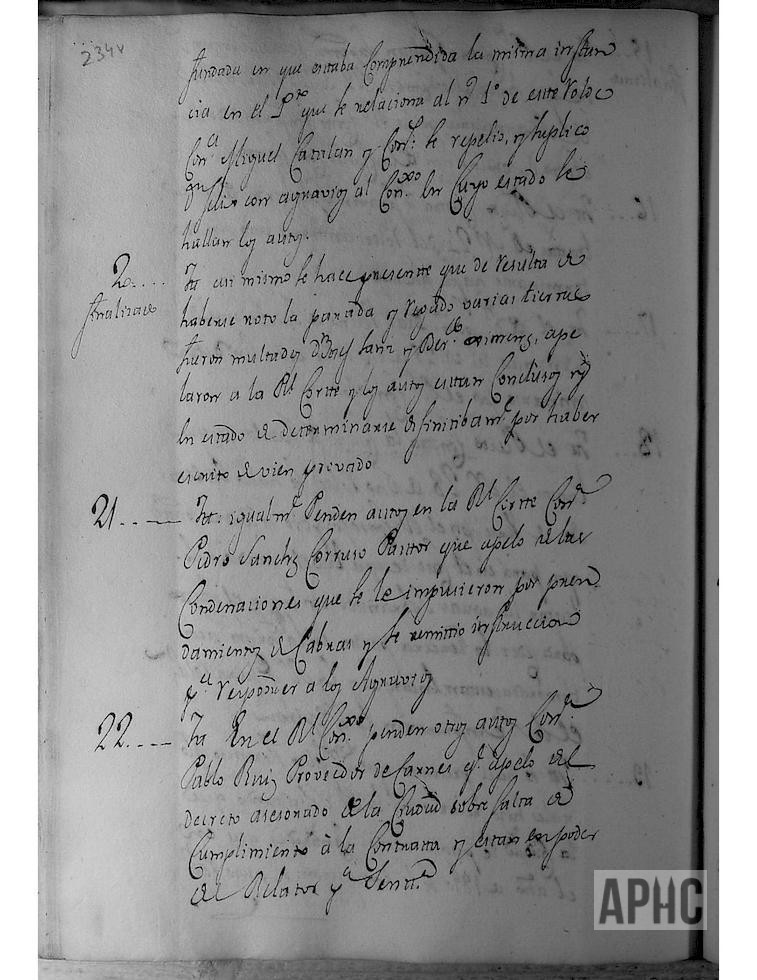 234v
fundada en que estaba Comprendida la misma instan
cia en el que se relaciona al nº 1º de este
Conª Miguel Catalan y Cons.: se repelio, y suplico
con agravios al Conxo. en Cuyo estado se
hallan los autos.
2....
finalizado
It asi mismo se hace presente que de resulta de
haberse roto la parada y regado varias tierras
fueron multados Sanz y Ximenez, ape
laron a la Rl Corte y los autos estan Conclusos y
en estado de determinarse difinitibamte por haber
escrito de vien provado
21....
It: igualmte Penden autos en la Rl Corte Conª
Pedro Sanchez Corruso Pastor que apelo de las
Condenaciones que se le impusieron por pren
damientos de Cabras y se remitio instruccion
pª responder a los Agravios
22....
It En el Rl Conxo penden otros autos Conª
Pablo Ruiz Proveedor de Carnes qe apelo del
decreto asesorado de la Ciudad sobre falta de
Cumplimiento à la Contrata y estan en poder
del Relator pª Sentª
APHC